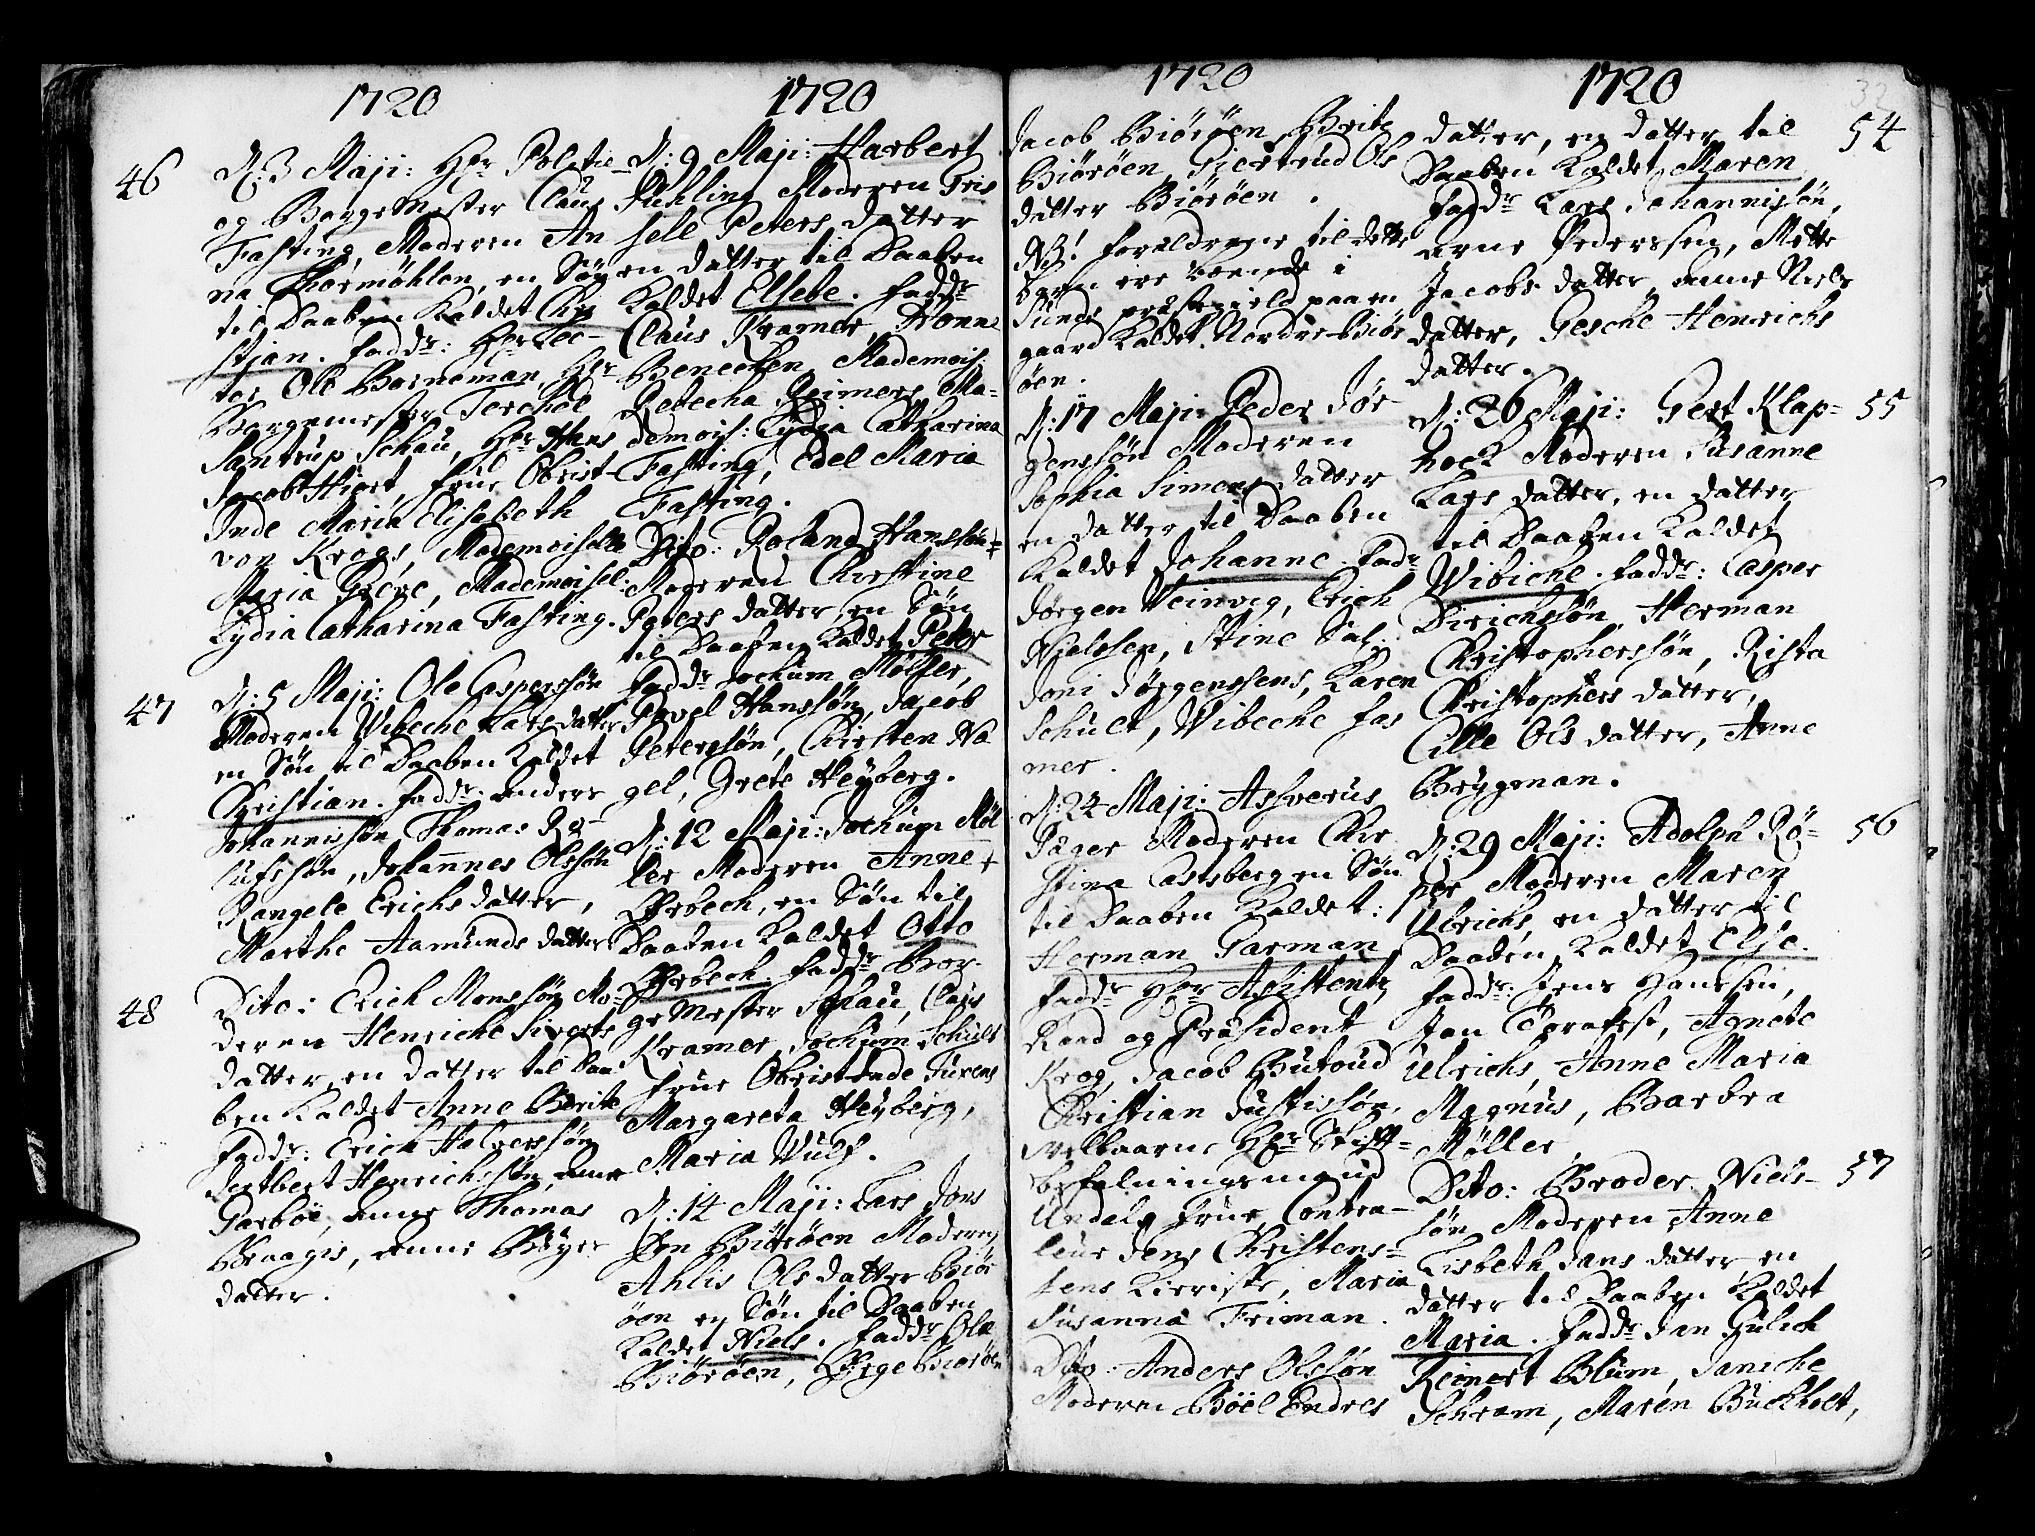 1720
46
d: 3 Maji: Hr Politie
og Borgemester Claus
Fasting, Moderen An
na Thormøhlen, en Søn
til Daaben kaldet Chri
stian. Fadd: Hr Lec-
tor Ole Borneman, Hr
Borgemester Terchel
Santrup Schau, Hr Hans
Jacob Hiort, frue Obrist-
Inde Maria Elisabeth
von Krogs, Mademoiselle
Maria Greve, Mademoisel:
Lydia Catharina Fasting.
47
d: 5 Maji: Ole Casperssøn
Moderen Wibeche Lars datter
en Søn til Daaben kaldet
Christian. Fadd: Anders
Johannissøn Thomas Ro-
lufssøn, Johannes Olssøn
Rangele Erichs datter,
Marthe Aamunds datter
48
Dito: Erich Monssøn Mo-
deren Henriche Siverts
datter en datter til Daa-
ben kaldet Anne Berite
Fadd: Erich Halverssøn
Hertbert Henrichssøn, Anne
Garboe, Anne Thomas
Kraagis, Anne Børges
datter.
1720
d: 9 Maji: Harbert
Pihling Moderen Cris
sell Peters datter
en datter til Daaben
kaldet Elsebe. Fadd:
Claus Kramer, Rønne
Benechen, Mademois:
Rebecha Reimers, Ma-
demois: Lydia Catharina
Fasting, Edel Maria
Fasting.
Dito: Roland Hanssøn
Moderen Christine
Peters datter, en Søn
til Daaben kaldet Peter
Fadd: Jochum Møller,
Povel Hanssøn, Jacob
Peterssøn, Kirsten Na
gel, Grete Heyberg.
d: 12 Maji: Jochum Møl
ler Moderen Anne
Ørbech, en Søn til
Daaben kaldet Otto
Ørbech. Fadd: Bor-
gemester Schau, Claus
Kramer, Jochum Schult
frue Obristinde Jurens
Margareta Heyberg,
Maria Wulf.
d: 14 Maji: Lars Jons
søn Biørøen Moderen
Ahlis Ols datter Biør
øen en Søn til Daaben
kaldet Niels. Fadd: Ole
Biørøen, Børge Biørøen
1720
Jacob Biørøen, Brite
Biørøen, Giertrud Ols
datter Biørøen.
NB: Forældrene til dette
barn ere boende i
Sunds præstegield paa en
gaard kaldet Nordre Biør
øen.
d: 17 Maji: Peder Jør
genssøn Moderen
Sophia Simens datter
en datter til Daaben
kaldet Johanne. Fadd:
Jørgen Weinvig, Erich
Nielssen, Stine Sal:
Joni Jørgenssens, Karen
Schult, Wibeche Fas
mer.
d: 24 Maji: Assverus
Jæger Moderen Chri
stina Castberg en Søn
til Daaben kaldet:
Herman Garman
Fadd: Hr Assistentz
Raad og Præsident
Krog, Jacob Butoud
Christian Justissøn,
velbaarne Hr Stift-
befalningsmand
Undals frue, Contra-
leur Jens Christens-
sens Kieriste, Maria
Susanna Friman.
Dito: Anders Olssøn
Moderen Bøel Endres
1720
54
datter, en datter til
Daaben kaldet Maren
Fadd: Lars Johannissøn,
Arne Pederssen, Mette
Jacobs datter, Anne Niels
datter, Gesche Henrichs
datter.
55
d: 26 Maji: Gert Klap-
hoek Moderen Susanne
Lars datter, en datter
til Daaben kaldet
Wibiche. Fadd: Casper
Dirichssøn, Herman
Christopherssøn, Rista
Christophers datter,
Cille Ols datter, Anne
Brygman.
56
d: 29 Maji: Adolph Rø-
per Moderen Maren
Ulrichs, en datter til
Daaben kaldet Else.
Fadd: Jens Hanssen,
Jan Agnete
Ulrichs, Anne Maria
Magnus, Barbra
Møller
57
Dito: Broder Niels-
søn Moderen Anne
Lisbeth Jans datter, en
datter til Daaben kaldet
Maria. Fadd: Jan Gulich
Reinert Blum, Janiche
Schram, Maren Buckholt,